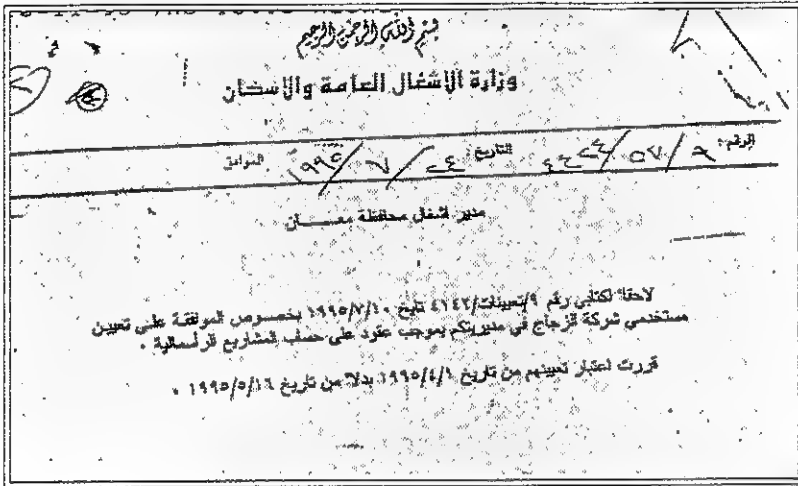 بسم الله الرحمن الرحيم
وزارة الاشغال العامة والاسكان
الرقم: ٩/٥٧/ التاريخ: ٢٤/٧/١٩٩٥ الموافق
مدير اشغال محافظة معـــــان
لاحقاً لكتابي رقم ٩/تعيينات/٤١٤٢ تاريخ ١٩٩٥/٧/١٠ بخصوص الموافقة على تعيين
مستخدمي شركة الزجاج في مديريتكم بموجب عقود على حساب المشاريع الرأسمالية .
قررت اعتبار تعيينهم من تاريخ ١٩٩٥/٤/١ بدلاً من تاريخ ١٩٩٥/٥/١٦ .